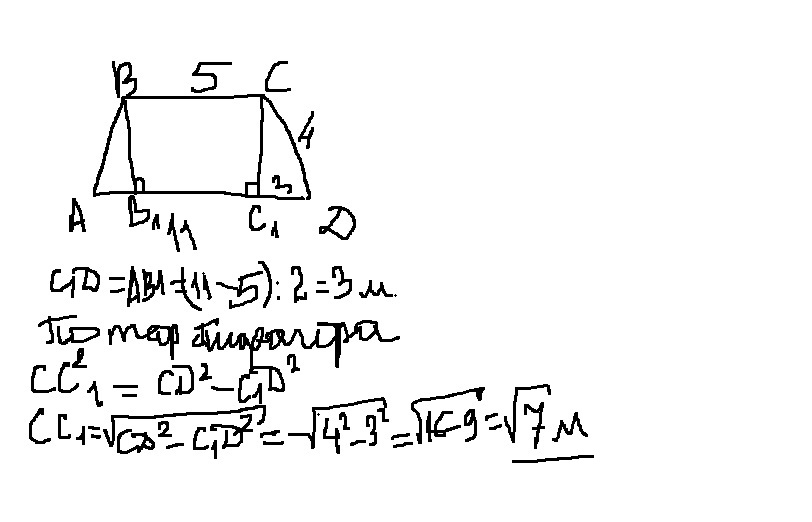 B 5 C
4
3
A B₁ 11 C₁ D
C₁D = AB1 = (11-5) : 2 = 3 м.
По теор Пифагора
CC₁² = CD² - C₁D²
CC₁ = √(CD² - C₁D²) = √(4² - 3²) = √(16-9) = √7 м